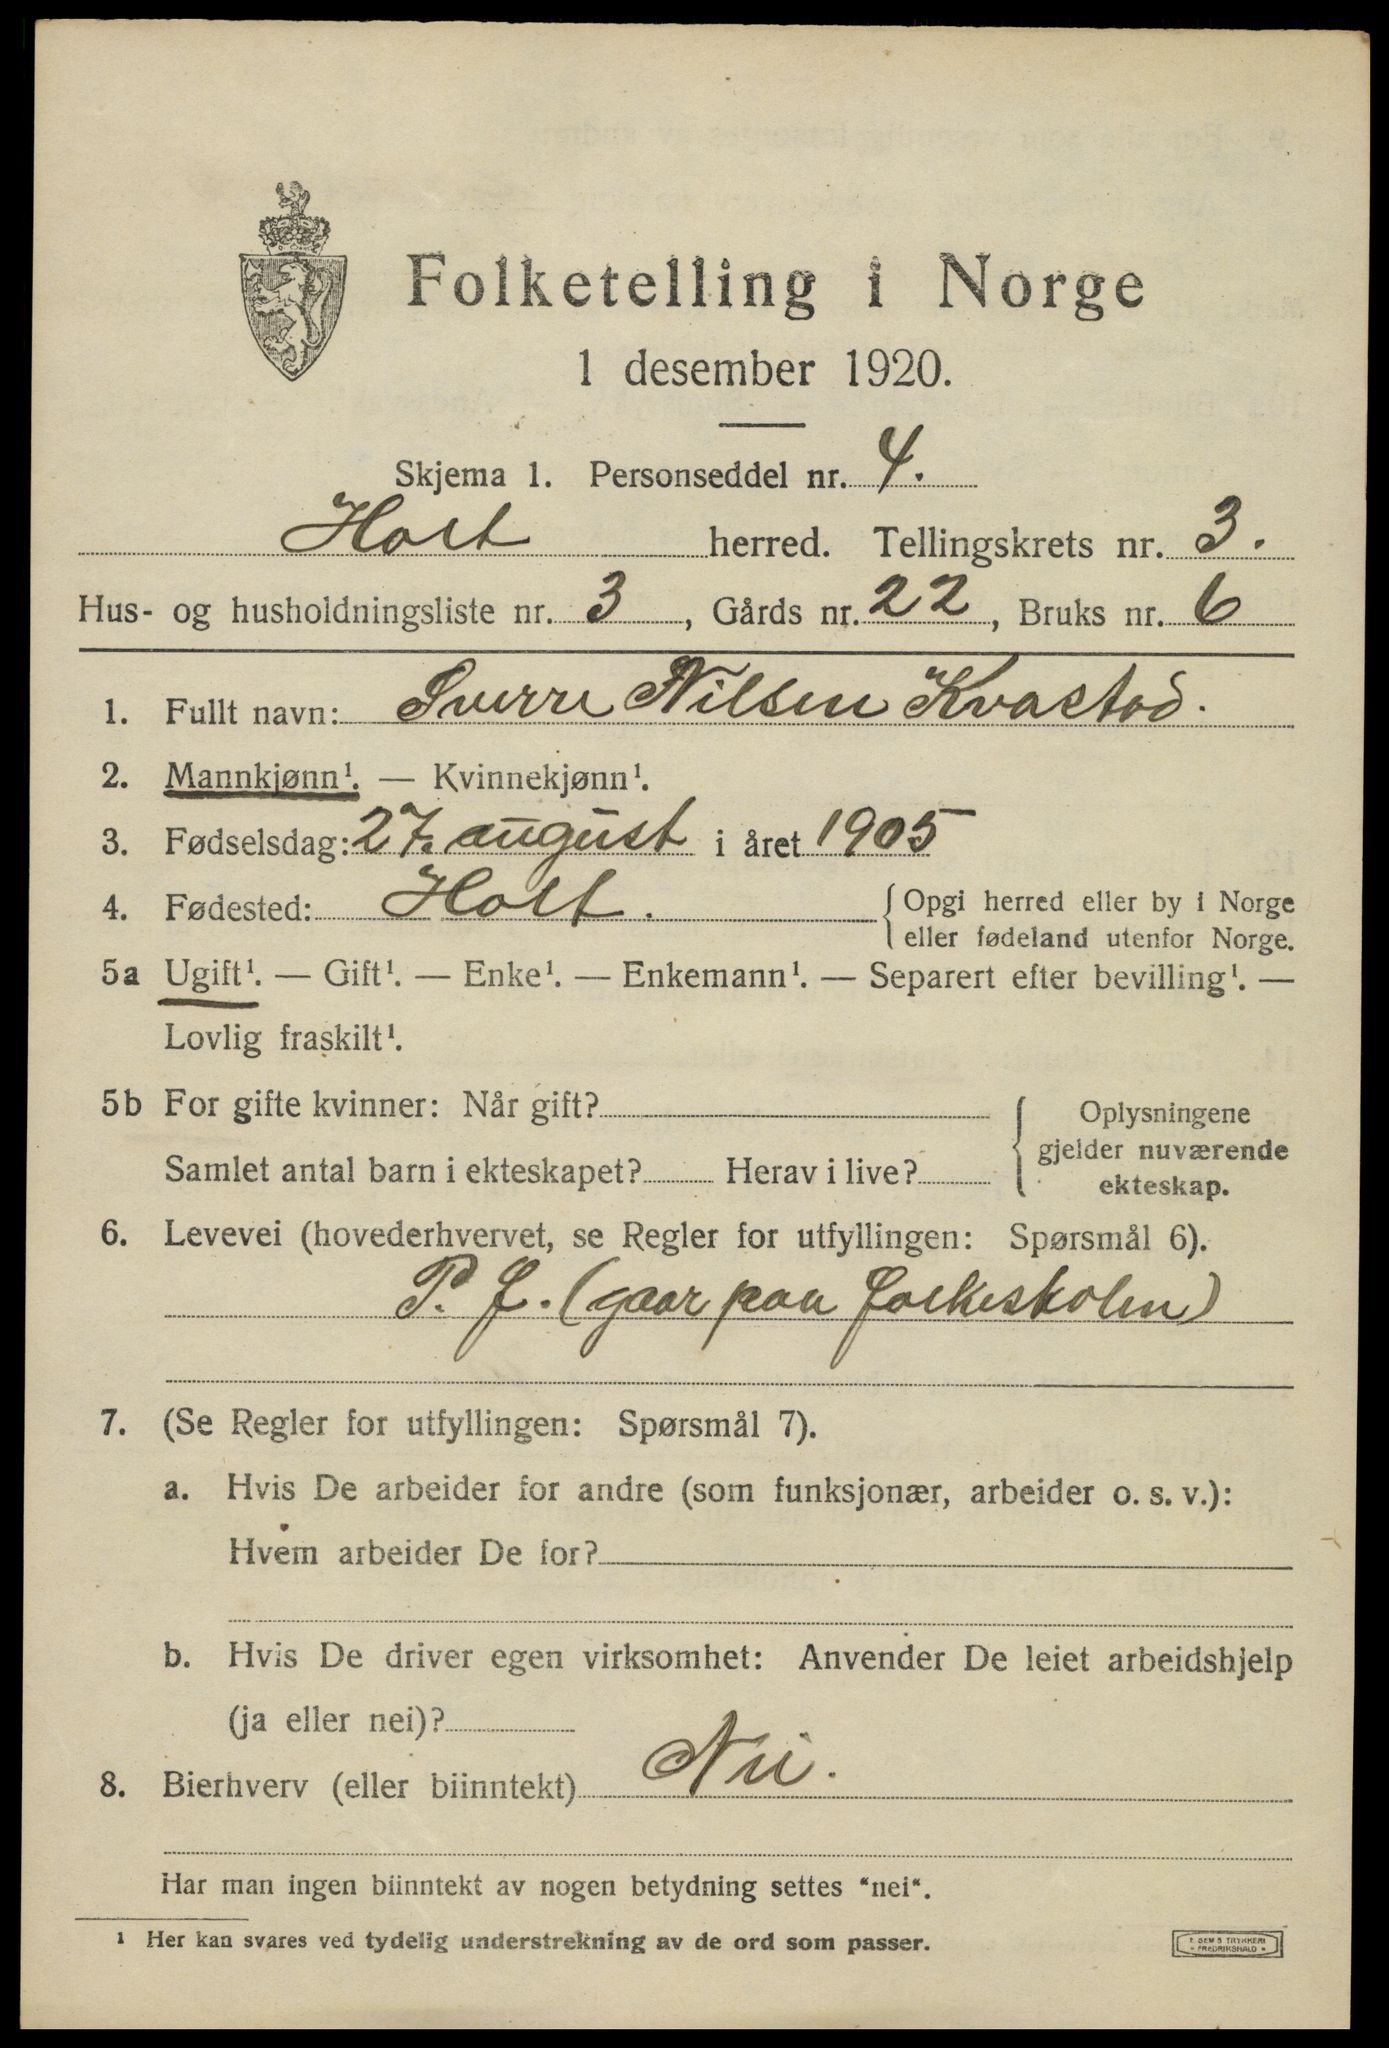 Folketelling i Norge
1 desember 1920.
Skjema 1. Personseddel nr. 4.
Holt herred. Tellingskrets nr. 3.
Hus- og husholdningsliste nr. 3, Gårds nr. 22, Bruks nr. 6
1. Fullt navn: Sverre Nilsen Kvastad.
2. Mannkjønn¹. — Kvinnekjønn¹.
3. Fødselsdag: 27. august i året 1905
4. Fødested: Holt. { Opgi herred eller by i Norge
eller fødeland utenfor Norge.
5a Ugift¹. — Gift¹. — Enke¹. — Enkemann¹. — Separert efter bevilling¹. —
Lovlig fraskilt¹.
5b For gifte kvinner: Når gift?
Samlet antal barn i ekteskapet? Herav i live?
Oplysningene
gjelder nuværende
ekteskap.
6. Levevei (hovederhvervet, se Regler for utfyllingen: Spørsmål 6).
P. F. (gaar paa folkeskolen)
7. (Se Regler for utfyllingen: Spørsmål 7).
a. Hvis De arbeider for andre (som funksjonær, arbeider o. s. v.):
Hvem arbeider De for?
b. Hvis De driver egen virksomhet: Anvender De leiet arbeidshjelp
(ja eller nei)?
8. Bierhverv (eller biinntekt) Nei.
Har man ingen biinntekt av nogen betydning settes "nei".
¹ Her kan svares ved tydelig understrekning av de ord som passer.
E. SEM'S TRYKKERI
• FREDRIKSHALD •